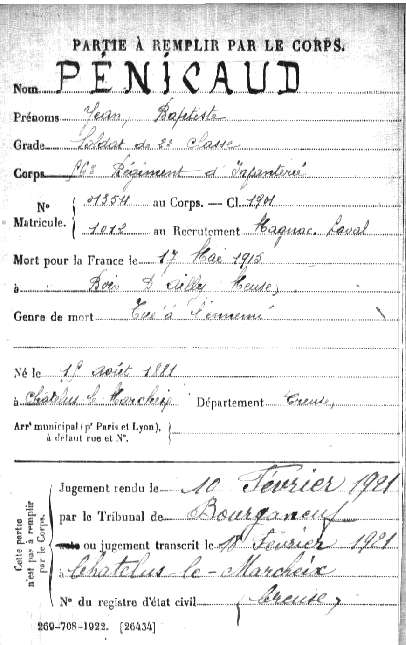 PARTIE À REMPLIR PAR LE CORPS.
Nom PÉNICAUD
Prénoms Jean, Baptiste
Grade Soldat de 2e Classe
Corps Régiment d'Infanterie
N° Matricule. 01354 au Corps. — Cl. 1901
1012 au Recrutement Magnac Laval
Mort pour la France le 17 Mai 1915
à Bois D'Ailly Meuse,
Genre de mort Tué à l'ennemi
Né le août 1881
à Chatelus le Marcheix Département Creuse,
Arrt municipal (pr Paris et Lyon),
à défaut rue et N°.
Cette partie
n'est pas à remplir
par le Corps.
Jugement rendu le 10 Février 1921
par le Tribunal de Bourganeuf
acte ou jugement transcrit le 18 Février 1921
à Chatelus-le-Marcheix
N° du registre d'état civil (Creuse,
269-708-1922. [26434]